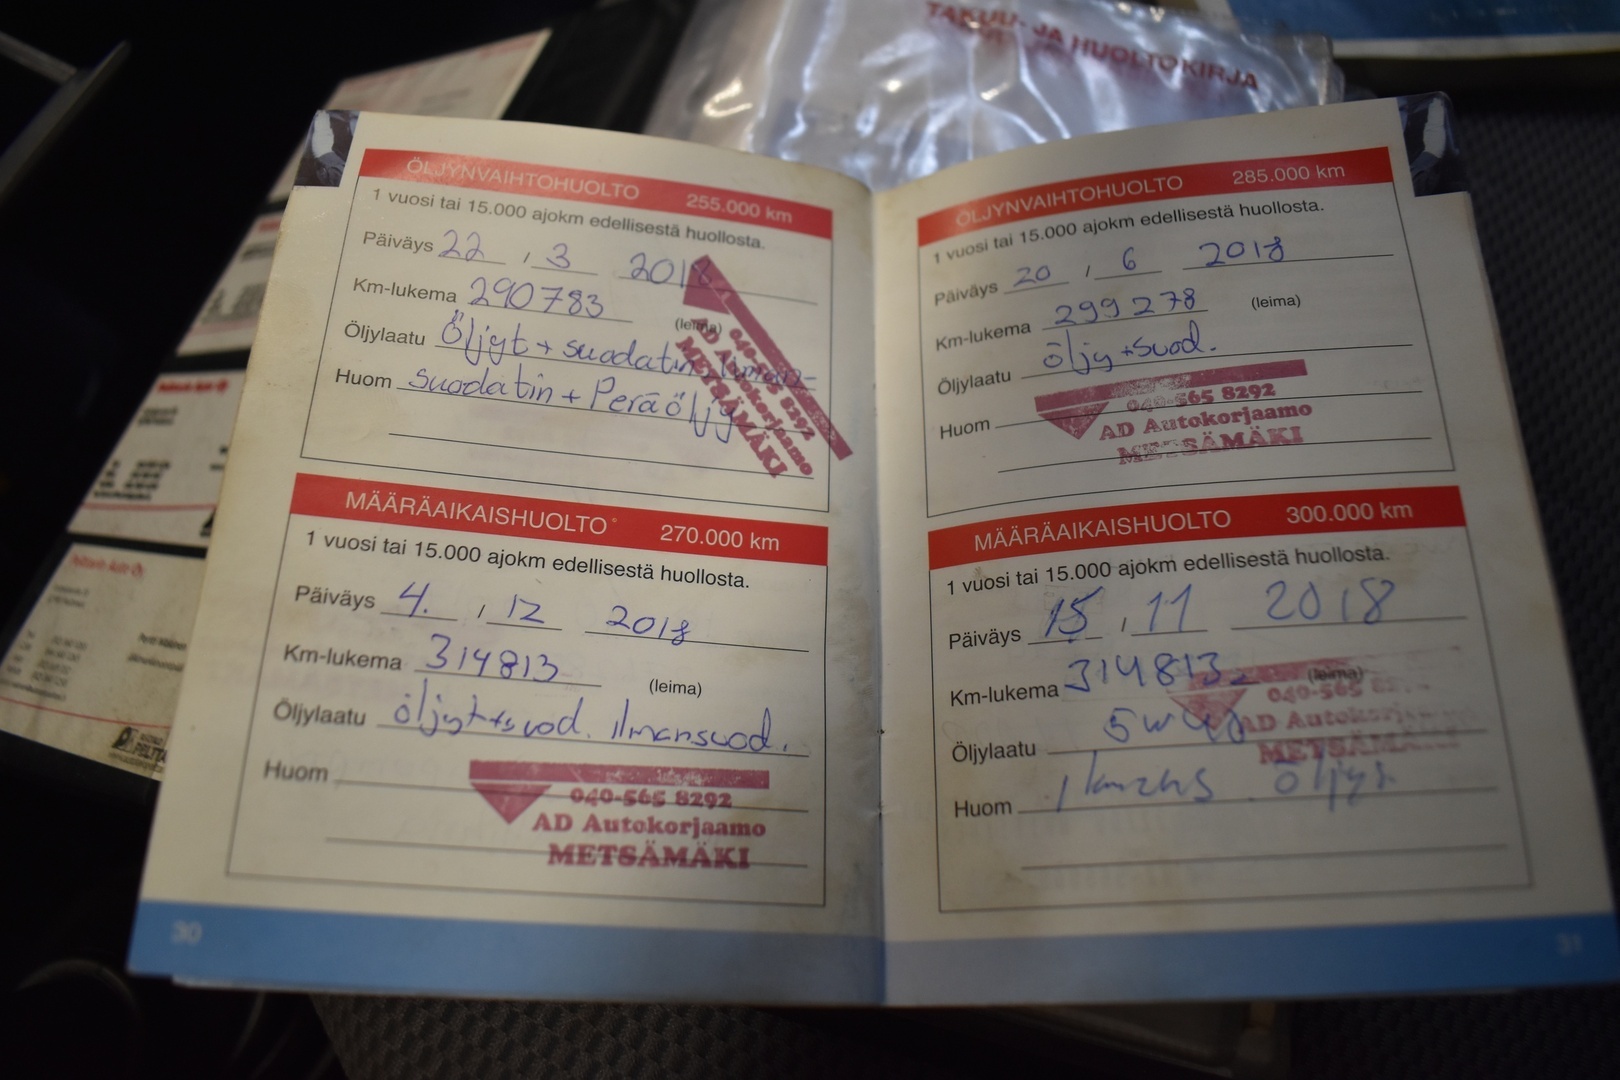 TAKUU- JA HUOLTOKIRJA
ÖLJYNVAIHTOHUOLTO 255.000 km
1 vuosi tai 15.000 ajokm edellisestä huollosta.
Päiväys 22 / 3 2018
Km-lukema 290783
(leima)
Öljylaatu Öljyt + suodatin, ilman-
Huom suodatin + Peräöljy
040-565 8292
AD Autokorjaamo
METSÄMÄKI
MÄÄRÄAIKAISHUOLTO 270.000 km
1 vuosi tai 15.000 ajokm edellisestä huollosta.
Päiväys 4. / 12 2018
Km-lukema 314813
(leima)
Öljylaatu öljyt+suod. ilmansuod.
Huom
040-565 8292
AD Autokorjaamo
METSÄMÄKI
30
ÖLJYNVAIHTOHUOLTO 285.000 km
1 vuosi tai 15.000 ajokm edellisestä huollosta.
Päiväys 20 / 6 2018
Km-lukema 299278 (leima)
Öljylaatu öljy+suod.
Huom
040-565 8292
AD Autokorjaamo
METSÄMÄKI
MÄÄRÄAIKAISHUOLTO 300.000 km
1 vuosi tai 15.000 ajokm edellisestä huollosta.
Päiväys 15 / 11 2018
Km-lukema 314813 (leima)
040-565
AD Autokorjaamo
METSÄMÄKI
Öljylaatu 5w40
Huom öljyt
31